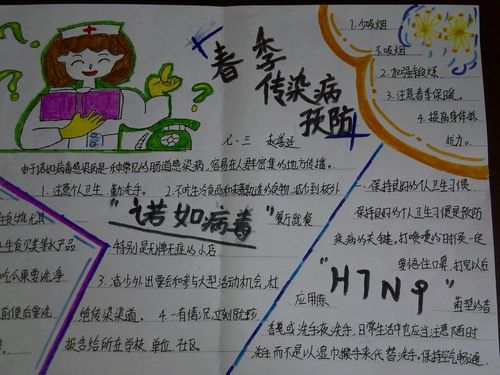 春季
传染病
预防
七.三
1.少吸烟
不吸烟
2.加强锻炼
3.注意春季保暖。
4.提高身体抵
抗力。
由于诺如病毒感染病是一种常见的肠道感染病,容易在人群密集的地方传播。
1.注意个人卫生,勤洗手。
2.不吃生冷食品和未煮熟的食物,减少到校外
"诺如病毒"
餐厅就餐
特别是无牌无证的小店
3.减少外出聚会和参与大型活动机会,杜
绝传染渠道。
4.一有情况立刻就诊
报告给所在学校.单位.社区
保持良好的个人卫生习惯
保持良好的个人卫生习惯是预防
疾病的关键。打喷嚏的时候一定
要捂住口鼻,打完以后
"H7N9"
应用流
香皂或洗手液洗手,日常生活中也应当注意随时
洗手而不是以湿巾擦手来代替洗手。保持空气畅通